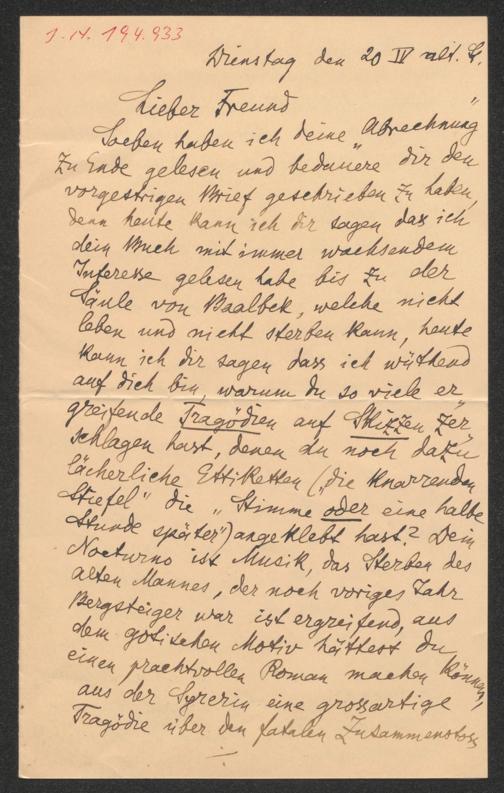 J.N. 194.933
Dienstag den 20 IV alt. St.
Lieber Freund
Soeben haben ich deine „Abrechnung"
zu Ende gelesen und bedauere dir den
vorgestrigen Brief geschrieben zu haben,
denn heute kann ich dir sagen dass ich
dein Buch mit immer wachsendem
Interesse gelesen habe bis zu der
Säule von Baalbek, welche nicht
leben und nicht sterben kann, heute
kann ich dir sagen dass ich wüthend
auf dich bin, warum du so viele er
greifende Tragödien auf Skizzen zer
schlagen hast, denen du noch dazu
lächerliche Ettiketten („die knarrenden
Stiefel" die „Stimme oder eine halbe
Stunde später") angeklebt hast? Dein
Nocturno ist Musik, das Sterben des
alten Mannes, der noch voriges Jahr
Bergsteiger war ist ergreifend, aus
dem gotischen Motiv hättest du
einen prachtvollen Roman machen können,
aus der Syrerin eine grossartige
Tragödie über den fatalen Zusammenstoss